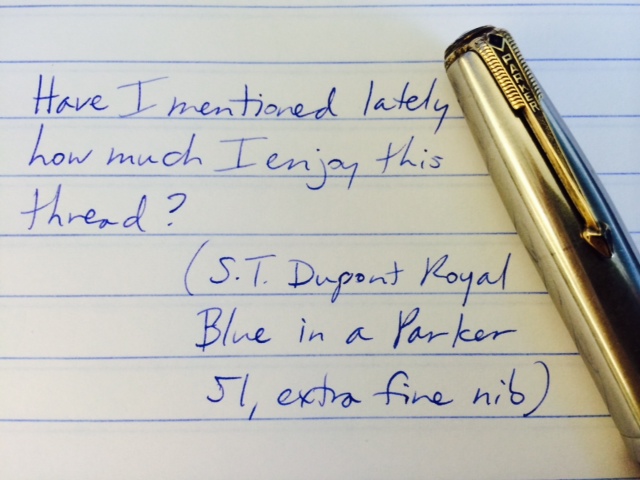 Have I mentioned lately
how much I enjoy this
thread?
(S.T. Dupont Royal
Blue in a Parker
51, extra fine nib)
PARKER